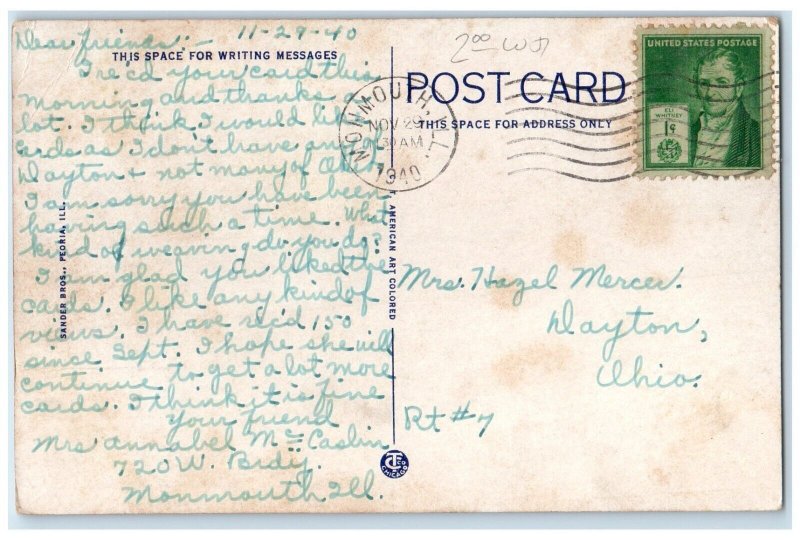 Dear friends:- 11-29-40
THIS SPACE FOR WRITING MESSAGES
I rec'd your card this
morning and thanks a
lot. I think I would like
as I don't have any of
Dayton & not many of Ohio
I am sorry you have been
having such a time. What
kind of weaving do you do?
I am glad you liked the
cards. I like any kind of
views. I have rec'd 150
since Sept. I hope she will
continue to get a lot more
cards. I think it is fine
Your friend
Mrs Annabel McCaslin
720 W. Bdy.
Monmouth Ill.
SANDER BROS., PEORIA, ILL.
AMERICAN ART COLORED
CT CO
CHICAGO
2.00
POST CARD
THIS SPACE FOR ADDRESS ONLY
MONMOUTH, ILL.
NOV 29
30 AM
1940
UNITED STATES POSTAGE
ELI
WHITNEY
1¢
Mrs. Hazel Mercer.
Dayton,
Ohio.
Rt #7